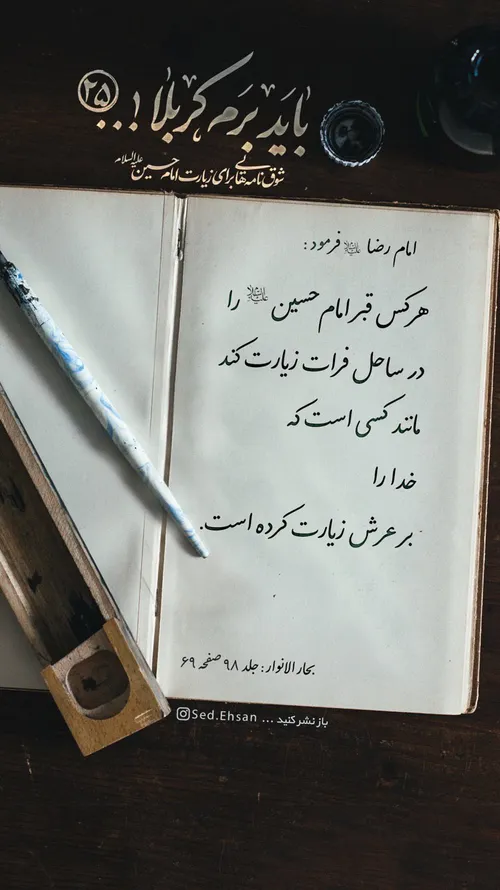 باید برم کربلا!... ۲۵
شوق نامه هایی برای زیارت امام حسین علیه‌السلام
امام رضا علیه‌السلام فرمود:
هرکس قبر امام حسین علیه‌السلام را
در ساحل فرات زیارت کند
مانند کسی است که
خدا را
بر عرش زیارت کرده است.
بحارالانوار: جلد ۹۸ صفحه ۶۹
بازنشر کنید ... Sed.Ehsan